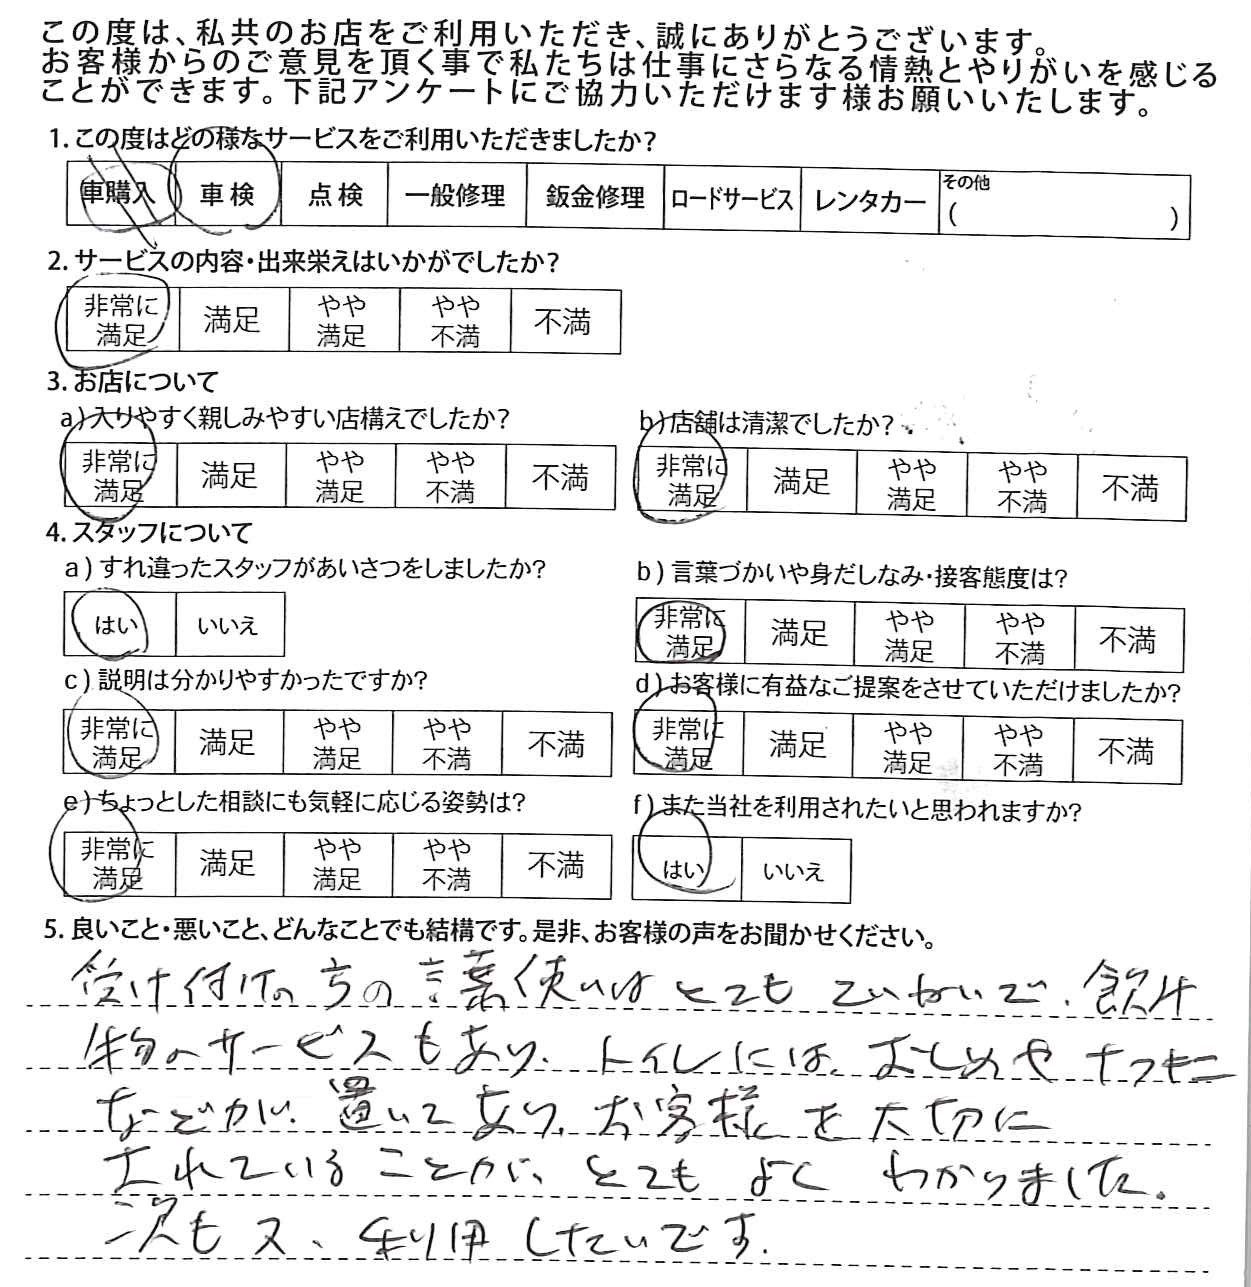 この度は、私共のお店をご利用いただき、誠にありがとうございます。
お客様からのご意見を頂く事で私たちは仕事にさらなる情熱とやりがいを感じる
ことができます。下記アンケートにご協力いただけます様お願いいたします。
1. この度はどの様なサービスをご利用いただきましたか?
車購入 車検 点検 一般修理 鈑金修理 ロードサービス レンタカー その他 ( )
2. サービスの内容・出来栄えはいかがでしたか?
非常に満足 満足 やや満足 やや不満 不満
3. お店について
a) 入りやすく親しみやすい店構えでしたか?
非常に満足 満足 やや満足 やや不満 不満
b) 店舗は清潔でしたか?
非常に満足 満足 やや満足 やや不満 不満
4. スタッフについて
a) すれ違ったスタッフがあいさつをしましたか?
はい いいえ
b) 言葉づかいや身だしなみ・接客態度は?
非常に満足 満足 やや満足 やや不満 不満
c) 説明は分かりやすかったですか?
非常に満足 満足 やや満足 やや不満 不満
d) お客様に有益なご提案をさせていただけましたか?
非常に満足 満足 やや満足 やや不満 不満
e) ちょっとした相談にも気軽に応じる姿勢は?
非常に満足 満足 やや満足 やや不満 不満
f) また当社を利用されたいと思われますか?
はい いいえ
5. 良いこと・悪いこと、どんなことでも結構です。是非、お客様の声をお聞かせください。
受け付けの方の言葉使いはとてもていねいで、飲み
物のサービスもあり、トイレには、おしめやナプキン
などが、置いてあり、お客様を大切に
されていることが、とてもよくわかりました。
次も又、利用したいです。